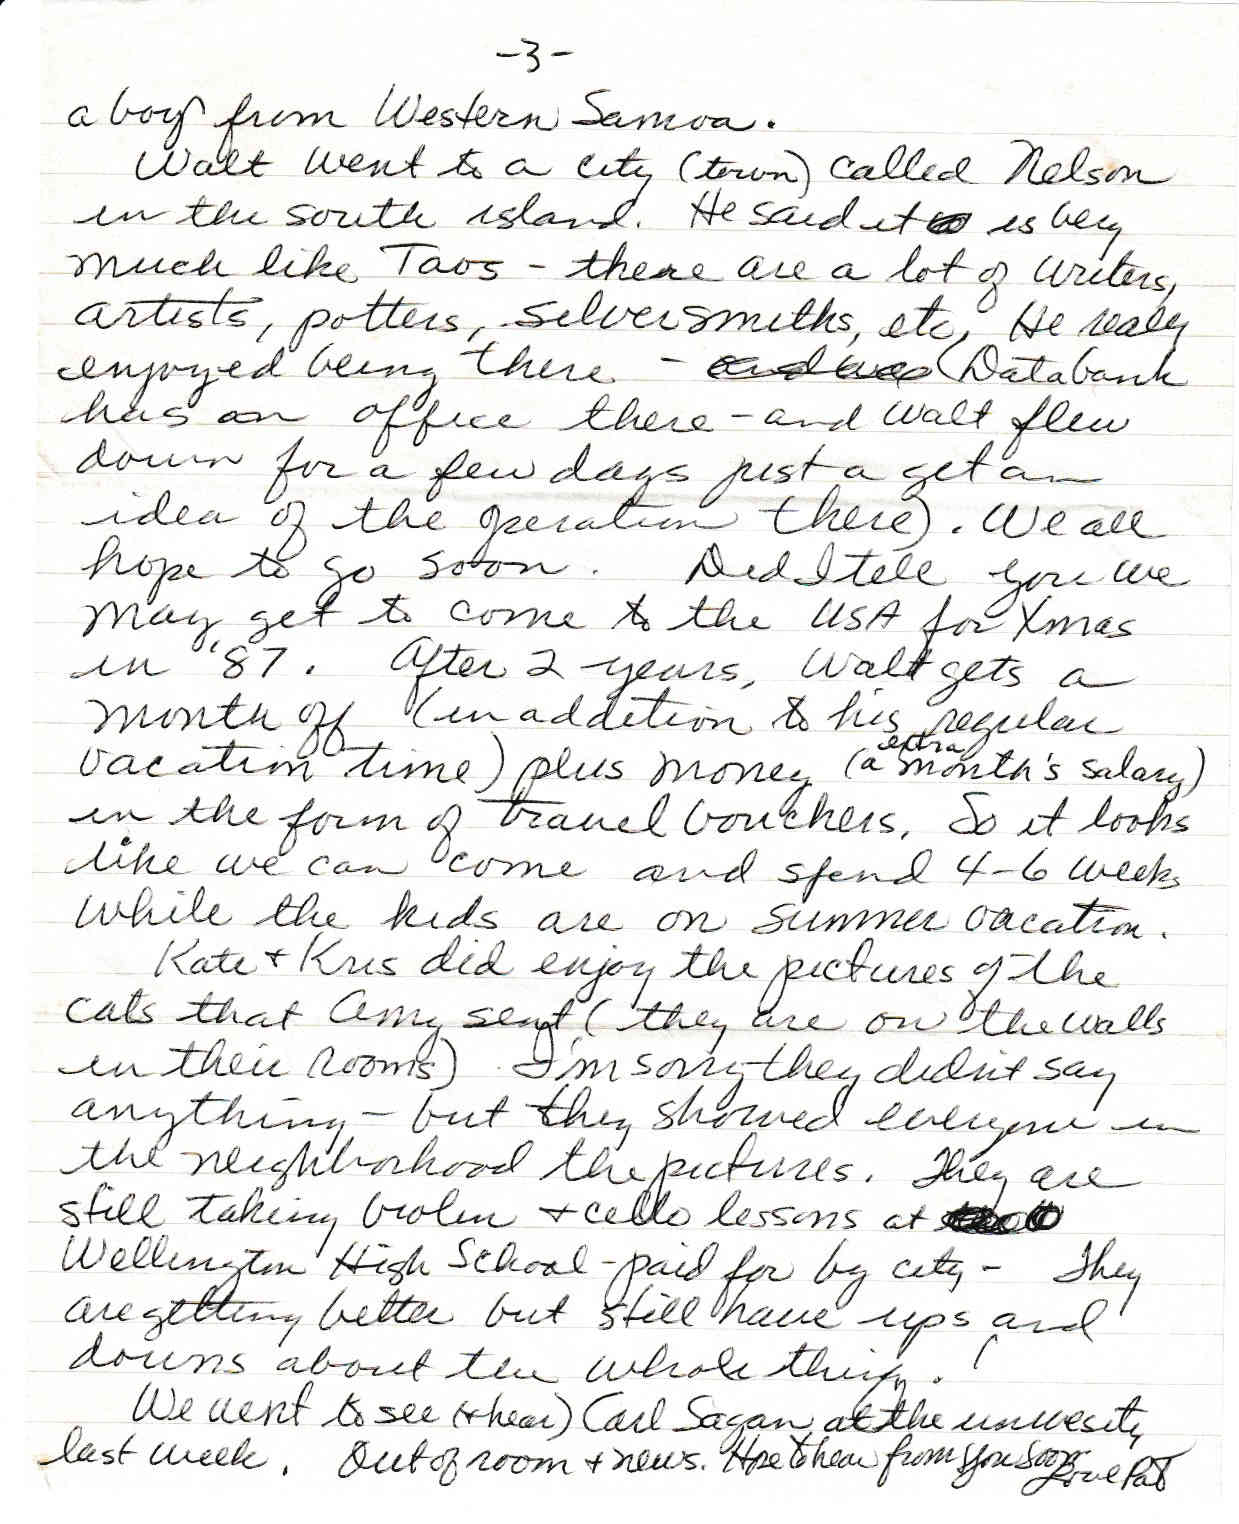 -3-
a boy from Western Samoa.
Walt went to a city (town) called Nelson
in the south island. He said it is very
much like Taos - there are a lot of writers,
artists, potters, silversmiths, etc, He realy
enjoyed being there - and was (Databank
has an office there - and Walt flew
down for a few days just a get an
idea of the operation there). We all
hope to go soon. Did I tell you we
may get to come to the USA for Xmas
in '87. After 2 years, Walt gets a
month off (in addition to his regular
vacation time) plus money (a extra month's salary)
in the form of travel vouchers. So it looks
like we can come and spend 4-6 weeks
while the kids are on summer vacation.
Kate + Kris did enjoy the pictures of the
cats that Amy sent (they are on the walls
in their rooms) I'm sorry they didn't say
anything - but they showed everyone in
the neighborhood the pictures. They are
still taking violin + cello lessons at
Wellington High School - paid for by city - They
are getting better but still have ups and
downs about the whole thing.
We went to see (+ hear) Carl Sagan at the university
last week. Out of room + news. Hope to hear from you soon
Love Pat